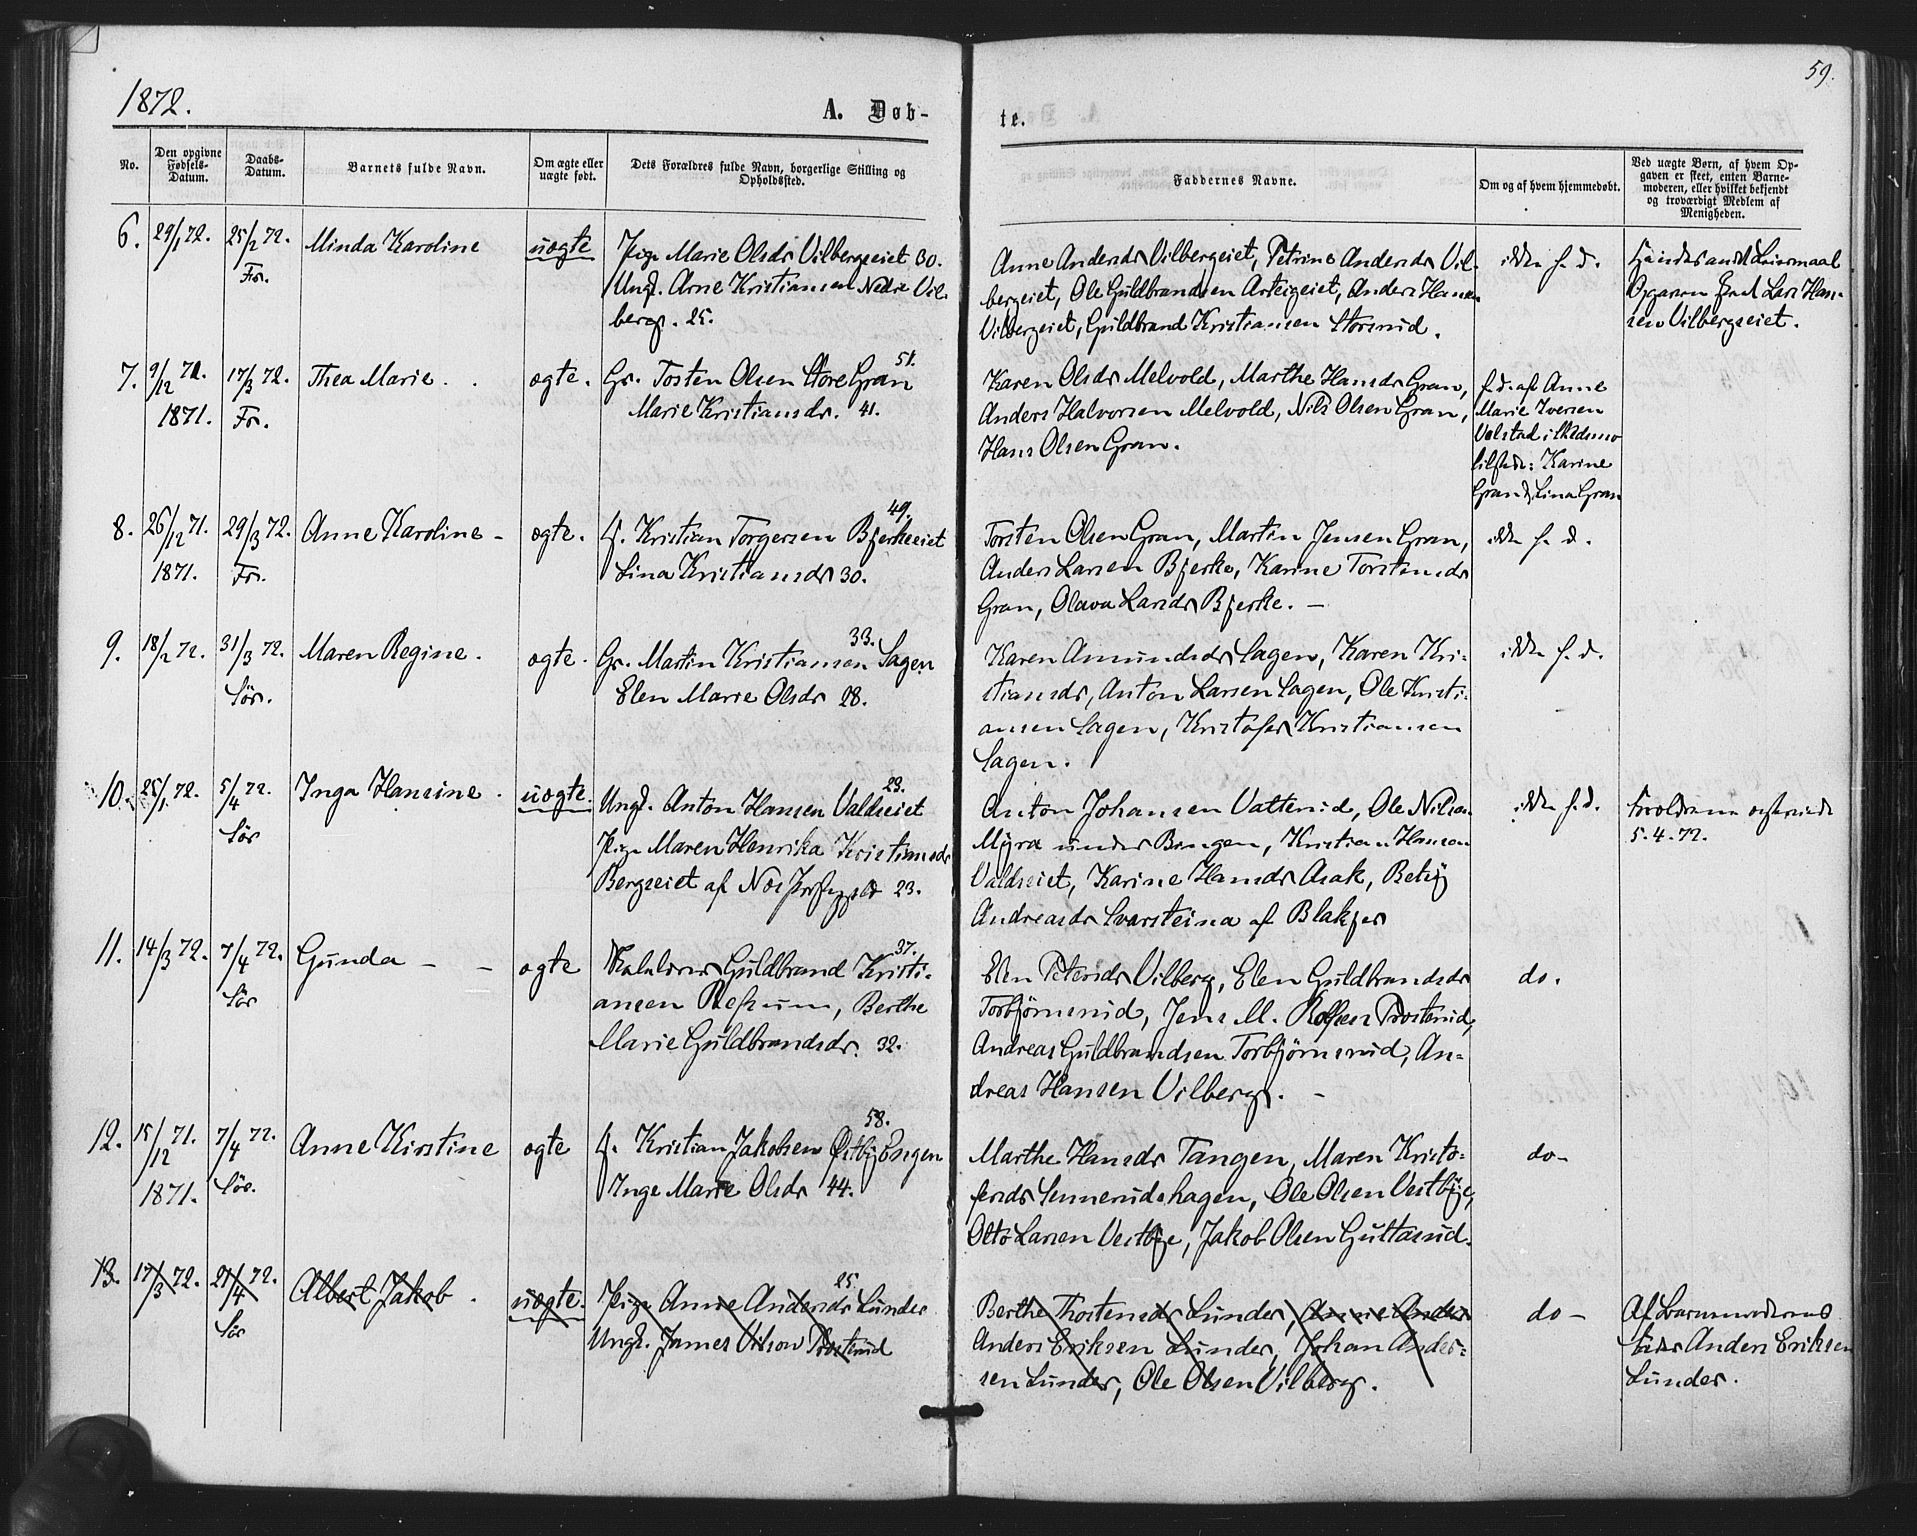 1872.
A. Døb-
te.
59.
No.
Den opgivne Fødsels-Datum.
Daabs-Datum.
Barnets fulde Navn.
Om ægte eller uægte født.
Dets Forældres fulde Navn, borgerlige Stilling og Opholdssted.
Faddernes Navne.
Om og af hvem hjemmedøbt.
Ved uægte Børn, af hvem Op-
gaven er skeet, enten Barne-
moderen, eller hvilket bekjendt
og troværdigt Medlem af
Menigheden.
6. 29/1 72. 25/2 72. Fr. Minda Karoline uægte
Pige Marie Olsdr Vilbergseiet 30.
Ungk. Arne Kristiansen Nedre Vil-
berg. 25.
Anne Andersdr Vilbergeiet, Petrine Andersdr Vil-
bergeiet, Ole Guldbrandsen Asteigeiet, Anders Hansen
Vilbergeiet, Guldbrand Kristiansen Storsrud.
ikke h. d.
Lars Han-
sen Vilbergseiet.
7. 9/12 71. 1871. 17/3 72. Fr. Thea Marie. ægte.
Gr. Torsten Olsen Store Gran 51.
Marie Kristiansdr. 41.
Karen Olsdr Melvold, Marthe Hansdr Gran,
Anders Halvorsen Melvold, Nils Olsen Gran,
Hans Olsen Gran.
h. d. af Anne
Marie Iversen
Vølstad i Skedsmo
tilstede: Karine
Gran & Lina Gran
8. 26/12 71. 1871. 29/3 72. Fr. Anne Karoline - ægte.
Kristian Torgersen Bjerkeeiet 49.
Lina Kristiansdr 30.
Torsten Olsen Gran, Martin Jensen Gran,
Anders Larsen Bjerke, Karine Torstensdr
Gran, Olava Larsdr Bjerke. -
ikke h. d.
9. 18/2 72. 31/3 72. Sør. Maren Regine. ægte.
Gr. Martin Kristiansen Sagen 33.
Elen Marie Olsdr 28.
Karen Amundsdr Sagen, Karen Kri-
stiansdr, Anton Larsen Sagen, Ole Kristi-
ansen Sagen, Kristofer Kristiansen
Sagen.
ikke h. d.
10. 25/1 72. 5/4 72. Sør Inga Hansine. uægte.
Ungk. Anton Hansen Valdseiet 23.
Pige Maren Henrika Kristiansdr
Bergseiet af Næs Prstgjeld 23.
Anton Johansen Vattenrud, Ole Nilsen
Myra under Bingen, Kristian Hansen
Valdseiet, Karine Hansdr Asak, Betsy
Andreasdr Svarsteina af Blakjer
ikke h. d.
Foroldrene
5-4-72.
11. 14/3 72. 7/4 72. Sør Gunda - - ægte
Guldbrand Kristi- 37.
ansen Refsum, Berthe
Marie Guldbrandsdr. 32.
Elen Petersdr Vilberg, Elen Guldbrandsdr
Torbjørnsrud, Jens M. Rolfsen Prosterud,
Andreas Guldbrandsen Torbjørnsrud, An-
dreas Hansen Vilberg. -
do.
12. 15/12 71. 1871. 7/4 72. Sør. Anne Kirstine ægte
Kristian Jakobsen Østby Engen 58.
Inge Marie Olsdr 44.
Marthe Hansdr Tangen, Maren Kristo-
fersdr Sennerudshagen, Ole Olsen Vestbye,
Otto Larsen Vestbye, Jakob Olsen Guttarsrud.
do-
13. 17/3 72. 21/4 72. Sør Albert Jakob. uægte.
Pige Anne Andersdr Lunder 25.
Ungk. James Vilson Prosterud
Berthe Thostensdr Lunder, Annie Anders
Anders Eriksen Lunder, Johan Ander-
sen Lunder, Ole Olsen Vilberg.
do -
Af Barnmoderens
Fader Anders Eriksen
Lunder.